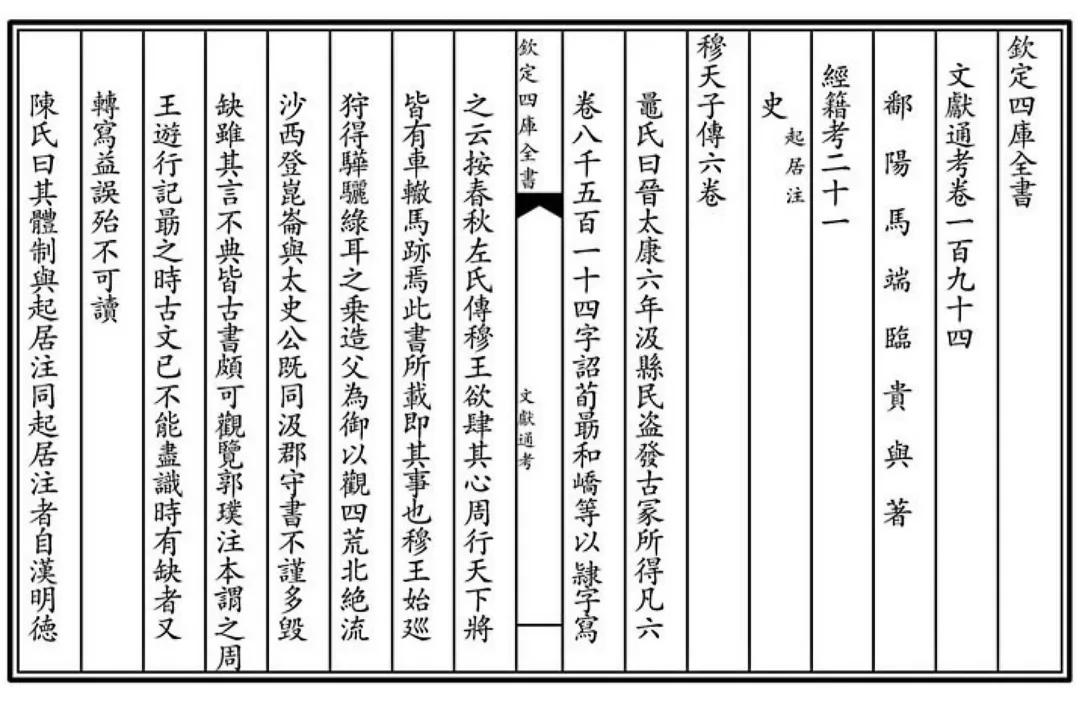 欽定四庫全書
文獻通考卷一百九十四
鄱陽馬端臨貴與著
經籍考二十一
史起居注
穆天子傳六卷
鼂氏曰晉太康六年汲縣民盜發古冢所得凡六
卷八千五百一十四字詔荀朂和嶠等以隷字寫
欽定四庫全書
文獻通考
之云按春秋左氏傳穆王欲肆其心周行天下將
皆有車轍馬跡焉此書所載即其事也穆王始廵
狩得驊騮綠耳之乗造父為御以觀四荒北絶流
沙西登崑崙與太史公既同汲郡守書不謹多毁
缺雖其言不典皆古書頗可觀覽郭璞注本謂之周
王遊行記朂之時古文已不能盡識時有缺者又
轉寫益誤殆不可讀
陳氏曰其體制與起居注同起居注者自漢明德